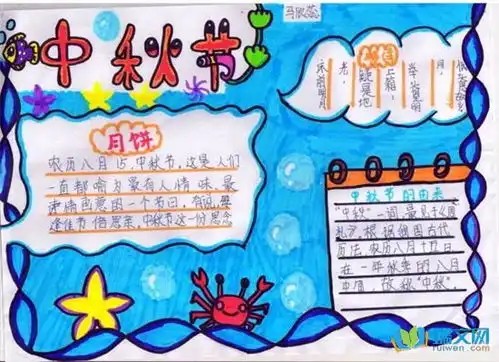 中秋节
月饼
农历八月15,中秋节,这是人们
一直都喻为最有人情味,最
诗情画意的一个节日,有说,每
逢佳节倍思亲,中秋节这一份思念
床前明月
光,
疑是地
上霜,
月,
中秋节的由来
"中秋"一词,最见于周
礼,根据我国古代
历法,农历八月十五日,
在一年秋季的八月
中旬,故称"中秋".
瑞文网
ruiwen.com